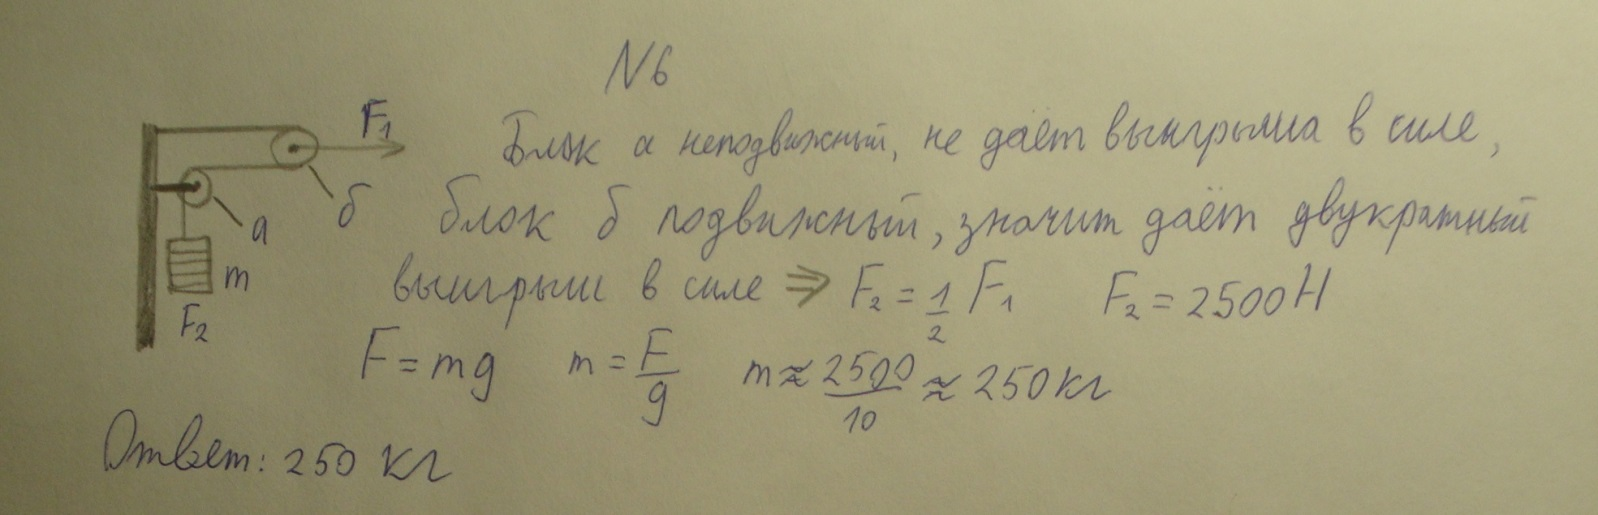 N6
F₁
Блок а неподвижный, не даёт выигрыша в силе,
б
блок б подвижный, значит даёт двукратный
а
m
выигрыш в силе ⇒ F₂ = 1/2 F₁ F₂ = 2500 Н
F₂
F = mg m = F/g m ≈ 2500/10 ≈ 250 кг
Ответ: 250 кг